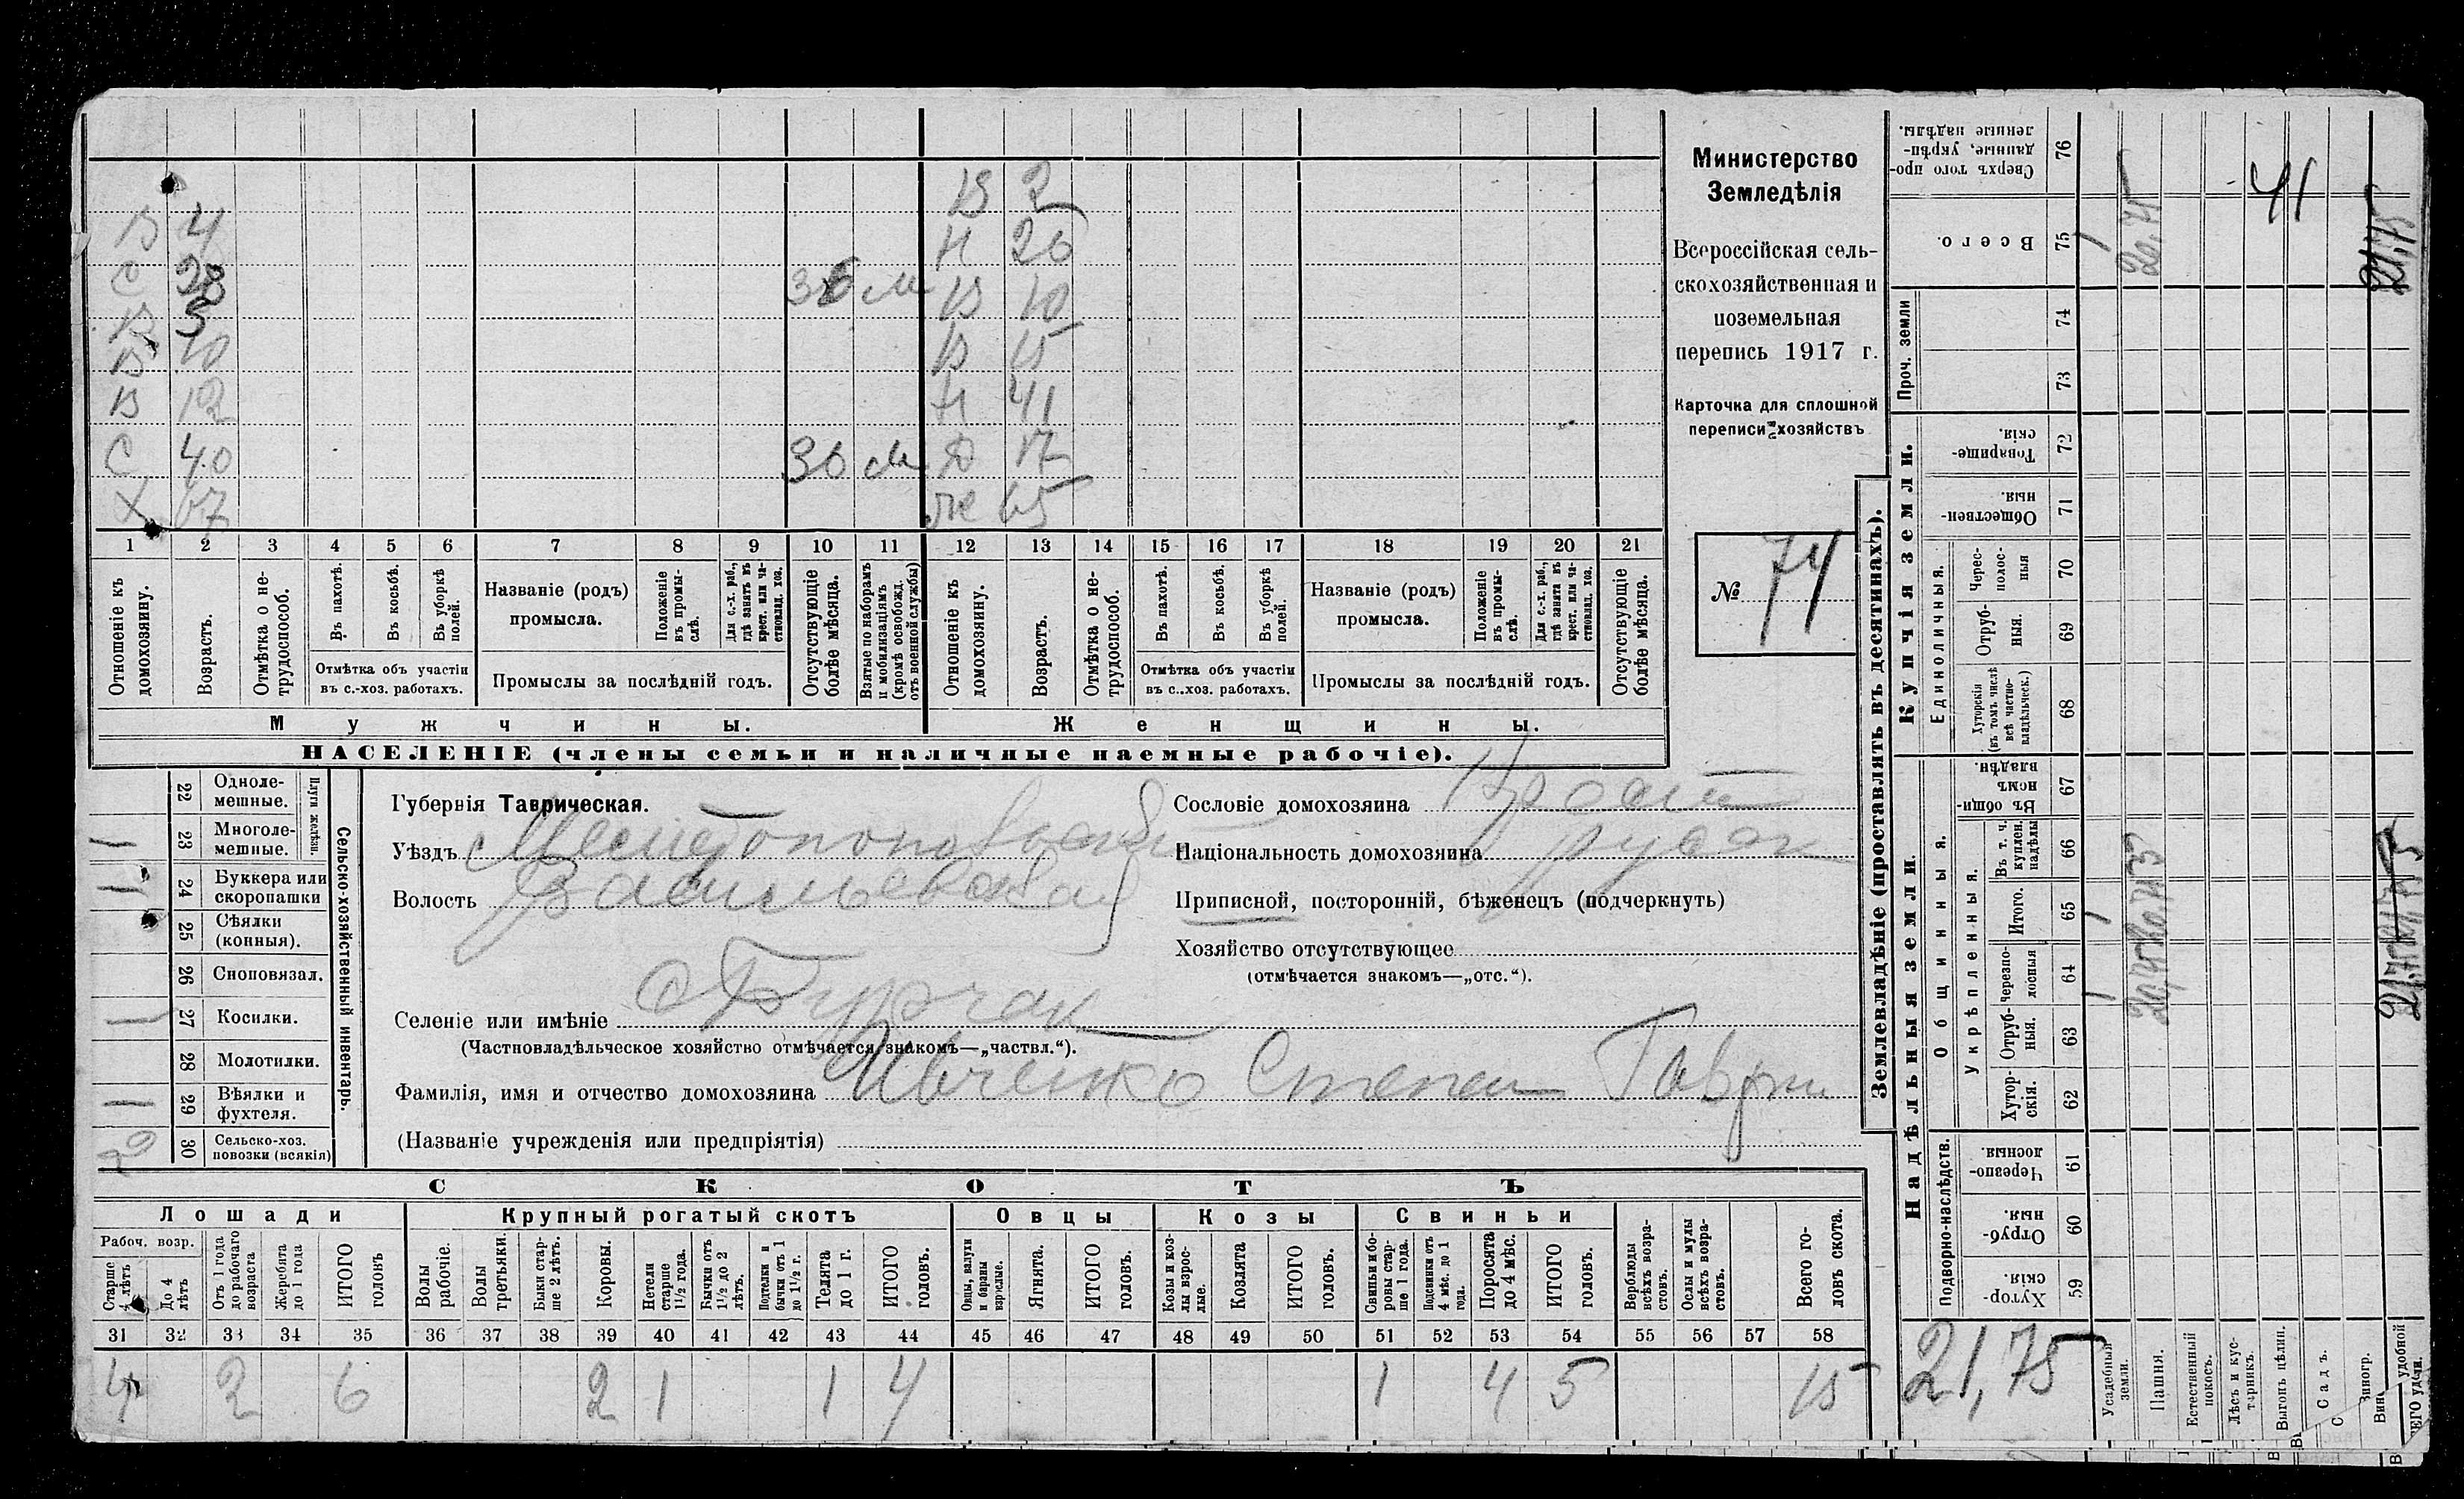 В 2
В 4 Н 20
С 28 36 м В 10
В 5
В 10 В 15
В 12 Н 41
С 40 36 м Д 17
Х 67 Ж 65
1 2 3 4 5 6 7 8 9 10 11 12 13 14 15 16 17 18 19 20 21
Отношеніе къ домохозяину.
Возрастъ.
Отмѣтка о не-трудоспособ.
Въ пахотѣ.
Въ косьбѣ.
Въ уборкѣ полей.
Отмѣтка объ участіи
въ с.-хоз. работахъ.
Названіе (родъ)
промысла.
Положеніе въ промы-слѣ.
Для с.-х. раб., гдѣ занятъ въ крест. или ча-стновлад. хоз.
Промыслы за послѣдній годъ.
Отсутствующіе болѣе мѣсяца.
Взятые по наборамъ и мобилизаціямъ (кромѣ освобожд. отъ военной службы)
Отношеніе къ домохозяину.
Возрастъ.
Отмѣтка о не-трудоспособ.
Въ пахотѣ.
Въ косьбѣ.
Въ уборкѣ полей.
Отмѣтка объ участіи
въ с..хоз. работахъ.
Названіе (родъ)
промысла.
Положеніе въ промы-слѣ.
Для с.-х. раб., гдѣ занята въ крест. или ча-стновлад. хоз.
Промыслы за послѣдній годъ.
Отсутствующіе болѣе мѣсяца.
Мужчины. Женщины.
НАСЕЛЕНІЕ (члены семьи и наличные наемные рабочіе).
Министерство
Земледѣлія
Всероссійская сель-
скохозяйственная и
поземельная
перепись 1917 г.
Карточка для сплошной
переписи хозяйствъ
№ 74
22 Одноле-мешные.
23 Многоле-мешные.
Плуги желѣзн.
24 Буккера или скоропашки
25 Сѣялки (конныя).
26 Сноповязал.
27 Косилки.
28 Молотилки.
29 Вѣялки и фухтеля.
2 30 Сельско-хоз. повозки (всякія)
Сельско-хозяйственный инвентарь.
Губернія Таврическая.
Уѣздъ Мелитопольскій
Волость Васильевская
Селеніе или имѣніе
(Частновладѣльческое хозяйство отмѣчается знакомъ—„частвл.“).
Фамилія, имя и отчество домохозяина Ивченко Степан Гаври
(Названіе учрежденія или предпріятія)
Сословіе домохозяина
Національность домохозяина
Приписной, посторонній, бѣженецъ (подчеркнуть)
Хозяйство отсутствующее
(отмѣчается знакомъ—„отс.“).
СКОТЪ
Лошади Крупный рогатый скотъ Овцы Козы Свиньи
Рабоч. возр.
Старше 4 лѣтъ
До 4 лѣтъ
Отъ 1 года до рабочаго возраста
Жеребята до 1 года
ИТОГО головъ
Волы рабочіе.
Волы третьяки.
Быки стар-ше 2 лѣтъ.
Коровы.
Нетели старше 1½ года.
Бычки отъ 1½ до 2 лѣтъ.
Подтелки и бычки отъ 1 до 1½ г.
Телята до 1 г.
ИТОГО головъ.
Овцы, валухи и бараны взрослые.
Ягнята.
ИТОГО головъ.
Козы и коз-лы взрос-лые.
Козлята
ИТОГО головъ.
Свиньи и бо-ровы стар-ше 1 года.
Подсвинки отъ 4 мѣс. до 1 года.
Поросята до 4 мѣс.
ИТОГО головъ.
Верблюды всѣхъ возра-стовъ.
Ослы и мулы всѣхъ возра-стовъ.
Всего го-ловъ скота.
31 32 33 34 35 36 37 38 39 40 41 42 43 44 45 46 47 48 49 50 51 52 53 54 55 56 57 58
4 2 6 2 1 1 4 1 4 5 15
Землевладѣніе (проставлять въ десятинахъ).
Купчія земли.
Надѣльныя земли.
Сверхъ того про-данные, укрѣп-ленные надѣлы. 76
Всего. 75
Проч. земли 74 73
Товарище-скія. 72
Обществен-ныя. 71
Единоличныя.
Черес-полос-ныя 70
Отруб-ныя. 69
Хуторскія (въ томъ числѣ всѣ частно-владѣльческ.) 68
Общинныя.
Въ общин-номъ владѣн. 67
Укрѣпленныя.
Въ т. ч. куплен. надѣлы 66
Итого. 65
черезпо-лосныя 64
Отруб-ныя. 63
Хутор-скія. 62
Подворно-наслѣдств.
Черезпо-лосныя. 61
Отруб-ныя. 60
Хутор-скія. 59
21,75
Усадебныя земли.
Пашня.
Естественный покосъ.
Лѣсъ и кус-тарникъ.
Выгонъ цѣлин.
Садъ.
Виногр.
удобной
41
20,75
21,75